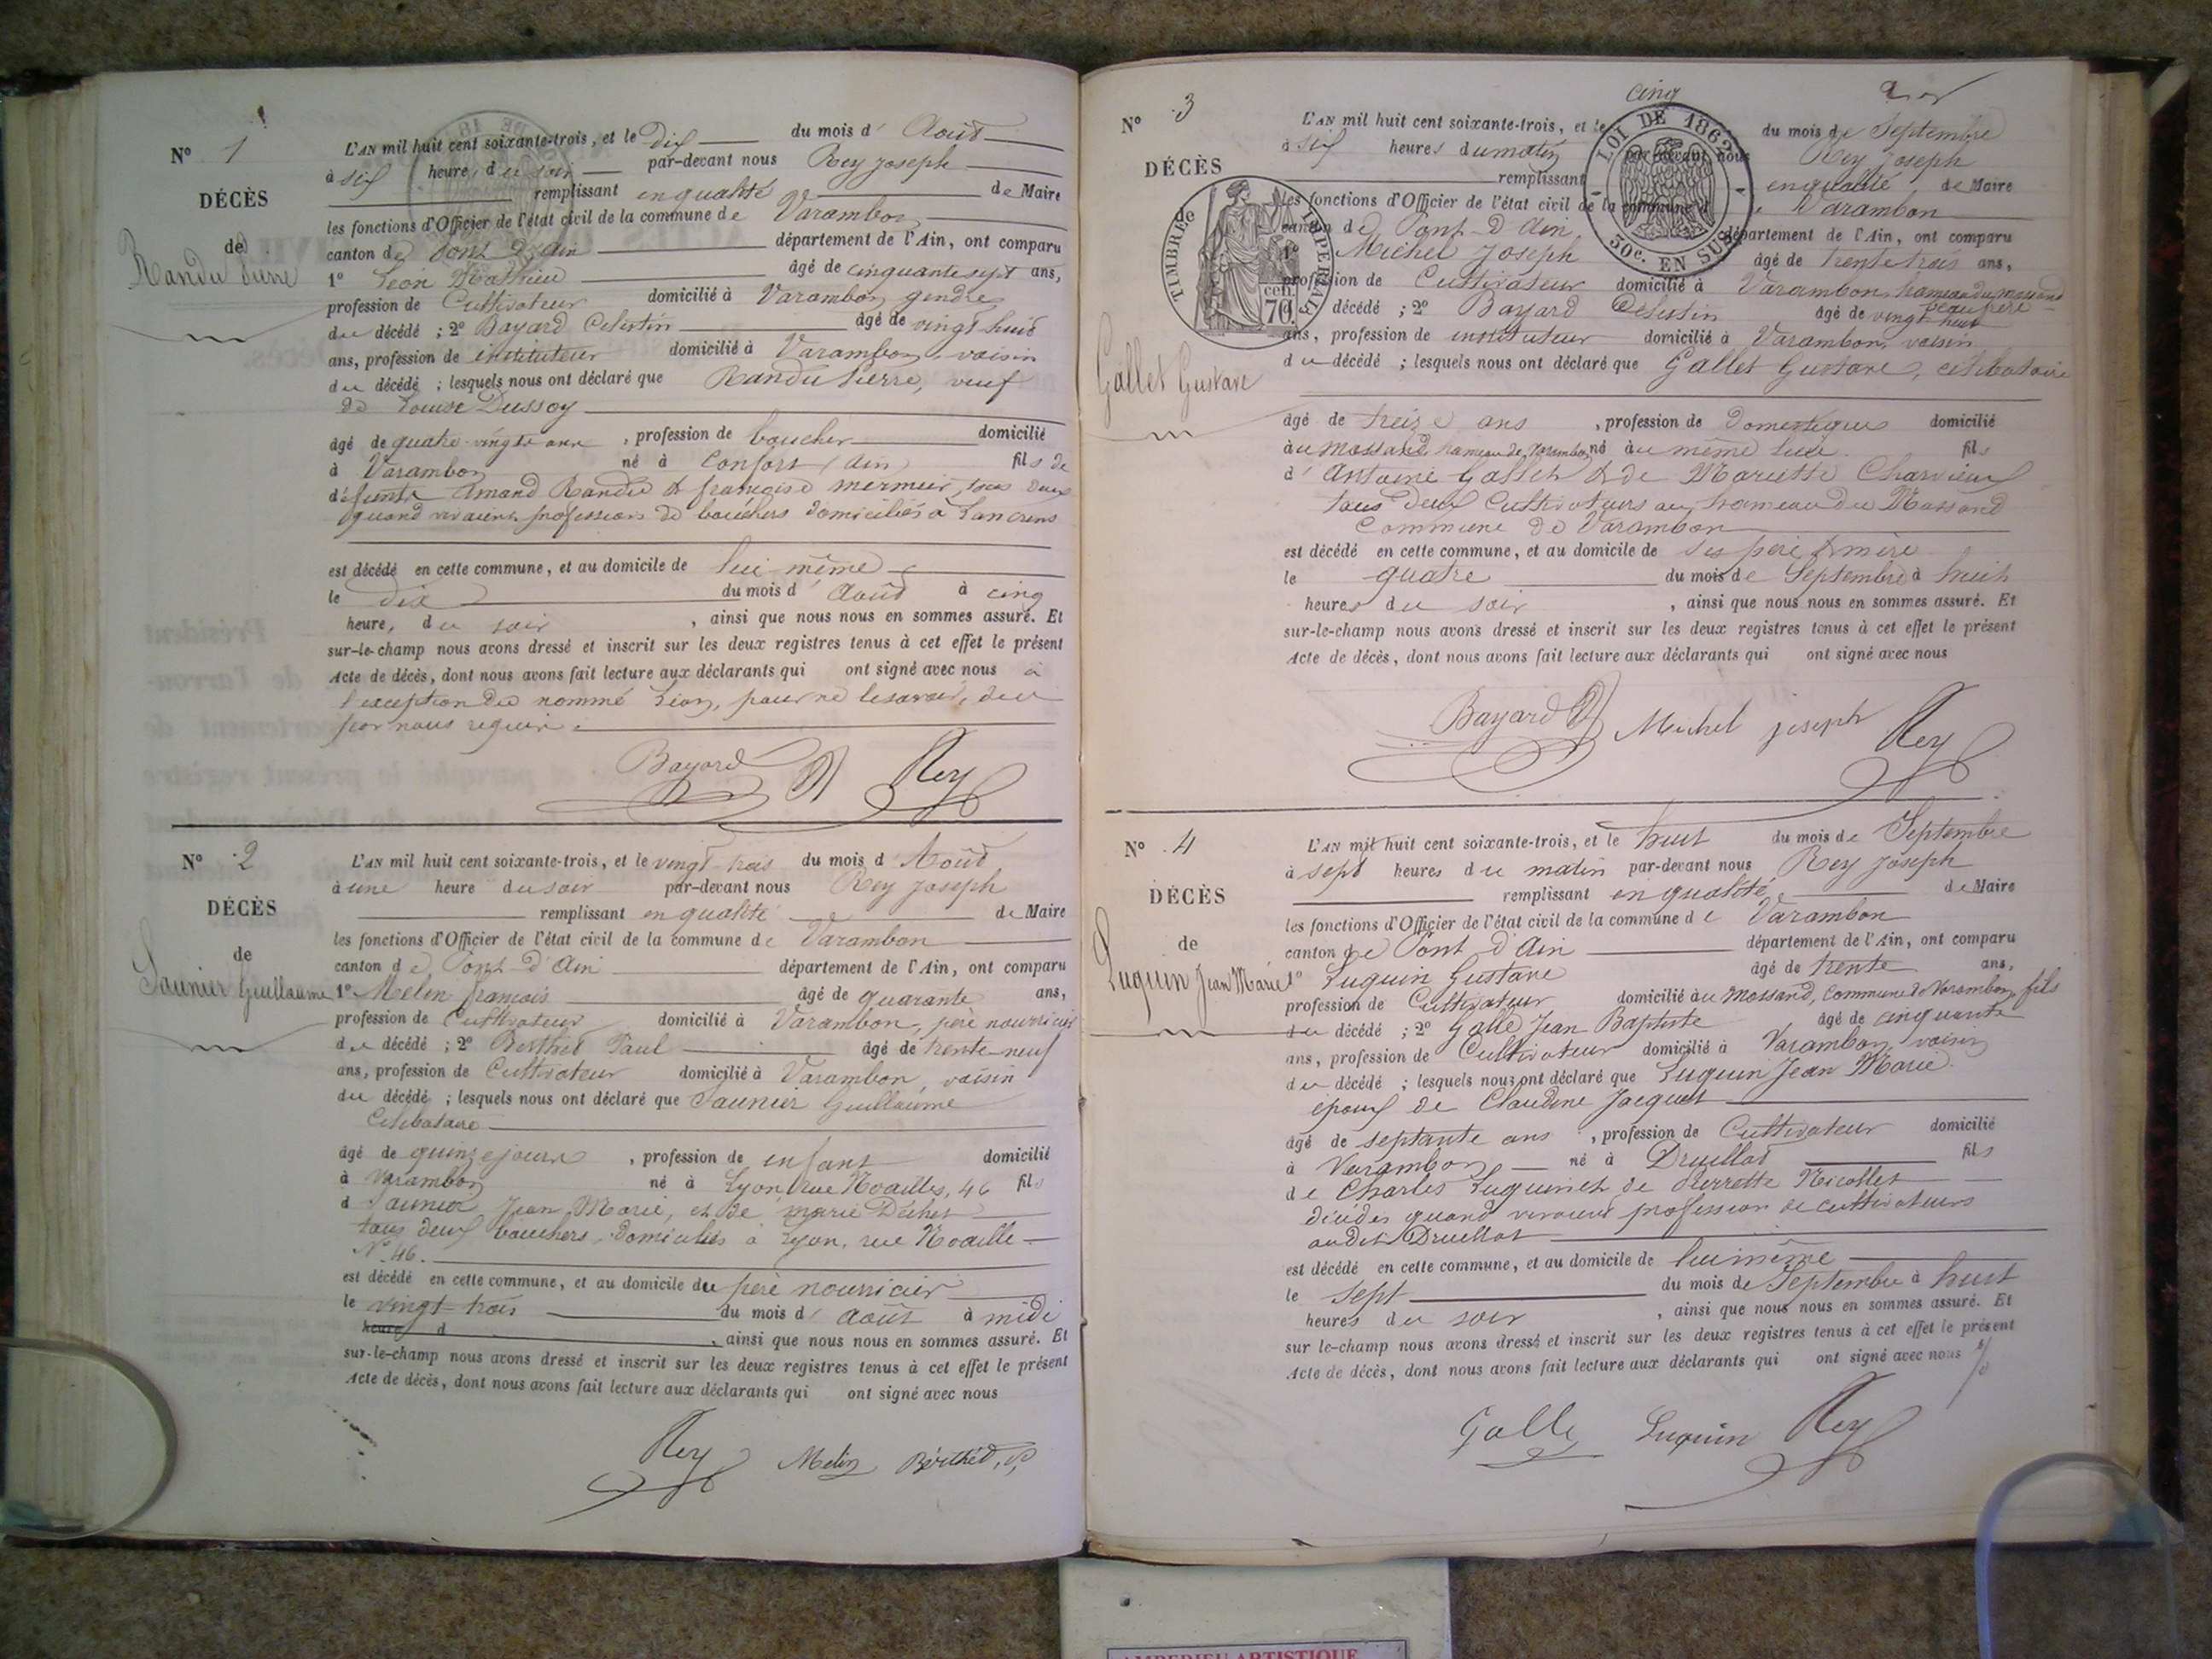 N° 1
DÉCÈS
de
Randu Pierre
L'AN mil huit cent soixante-trois, et le dix du mois d' Août
à six heures du soir par-devant nous Rey Joseph
remplissant en qualité de Maire
les fonctions d'Officier de l'état civil de la commune de Varambon
canton de Pont d'ain département de l'Ain, ont comparu
1° Léon Mathieu âgé de cinquante sept ans,
profession de Cultivateur domicilié à Varambon, gendre
du décédé ; 2° Bayard Celestin âgé de vingt huit
ans, profession de instituteur domicilié à Varambon, voisin
du décédé ; lesquels nous ont déclaré que Randu Pierre, veuf
de Louise Dussoy
âgé de quatre-vingts ans, profession de boucher domicilié
à Varambon né à Confort (ain) fils de
défunts Amand Randu & françoise mermier, tous deux
quand vivaient profession de bouchers domiciliés à Lancrens
est décédé en cette commune, et au domicile de lui même
le dix du mois d' Août à cinq
heures du soir, ainsi que nous nous en sommes assuré. Et
sur-le-champ nous avons dressé et inscrit sur les deux registres tenus à cet effet le présent
Acte de décès, dont nous avons fait lecture aux déclarants qui ont signé avec nous à
l'exception du nommé Léon, pour ne le savoir, de ce
par nous requis.
Bayard Rey
N° 2
DÉCÈS
de
Saunier Guillaume
L'AN mil huit cent soixante-trois, et le vingt-trois du mois d' Août
à une heure du soir par-devant nous Rey Joseph
remplissant en qualité de Maire
les fonctions d'Officier de l'état civil de la commune de Varambon
canton de Pont-d'Ain département de l'Ain, ont comparu
1° Melin françois âgé de quarante ans,
profession de Cultivateur domicilié à Varambon, père nourricier
du décédé ; 2° Berthet Paul âgé de trente-neuf
ans, profession de Cultivateur domicilié à Varambon, voisin
du décédé ; lesquels nous ont déclaré que Saunier Guillaume
Célibataire
âgé de quinze jours, profession de enfant domicilié
à Varambon né à Lyon, rue Noailles, 46 fils
d Saunier Jean Marie, et de marie Déchet
tous deux bouchers, domiciliés à Lyon, rue Noaille
N° 46.
est décédé en cette commune, et au domicile du père nourricier
le vingt-trois du mois d' août à midi
heure d , ainsi que nous nous en sommes assuré. Et
sur-le-champ nous avons dressé et inscrit sur les deux registres tenus à cet effet le présent
Acte de décès, dont nous avons fait lecture aux déclarants qui ont signé avec nous
Rey Melin Berthéd, P,
N° 3
DÉCÈS
Gallet Gustave
TIMBRE IMPERIAL
70 cen.
LOI DE 1862
50c. EN SUS
cinq
L'AN mil huit cent soixante-trois, et le du mois de Septembre
à six heures du matin par-devant nous Rey Joseph
remplissant en qualité de Maire
les fonctions d'Officier de l'état civil de la commune de Varambon
canton de Pont-d'Ain, département de l'Ain, ont comparu
1° Michel Joseph âgé de trente trois ans,
profession de Cultivateur domicilié à Varambon, hameau du mossand beau père
décédé ; 2° Bayard Célestin âgé de vingt huit
ans, profession de instituteur domicilié à Varambon, voisin
du décédé ; lesquels nous ont déclaré que Gallet Gustave, célibataire
âgé de treize ans, profession de Domestique domicilié
au Mossand, hameau de Varambon né au même lieu fils
d' Antoine Gallet & de Mariette Charvieux
tous deux Cultivateurs au hameau du Mossand
Commune de Varambon
est décédé en cette commune, et au domicile de ses père & mère
le quatre du mois de Septembre à huit
heures du soir, ainsi que nous nous en sommes assuré. Et
sur-le-champ nous avons dressé et inscrit sur les deux registres tenus à cet effet le présent
Acte de décès, dont nous avons fait lecture aux déclarants qui ont signé avec nous
Bayard Michel joseph Rey
N° 4
DÉCÈS
de
Luquin Jean Marie
L'AN mil huit cent soixante-trois, et le huit du mois de Septembre
à sept heures du matin par-devant nous Rey Joseph
remplissant en qualité de Maire
les fonctions d'Officier de l'état civil de la commune de Varambon
canton de Pont d'Ain département de l'Ain, ont comparu
1° Luquin Gustave âgé de trente ans,
profession de Cultivateur domicilié au Mossand, Commune de Varambon, fils
du décédé ; 2° Galle Jean Baptiste âgé de cinquante
ans, profession de Cultivateur domicilié à Varambon, voisin
du décédé ; lesquels nous ont déclaré que Luquin Jean Marie.
époux de Claudine Jacquet
âgé de septante ans, profession de Cultivateur domicilié
à Varambon né à Druillat fils
de Charles Luquin et de Pierrette Nicollet
décédés quand vivaient profession de cultivateurs
audit Druillat
est décédé en cette commune, et au domicile de lui même
le sept du mois de Septembre à huit
heures du soir, ainsi que nous nous en sommes assuré. Et
sur le-champ nous avons dressé et inscrit sur les deux registres tenus à cet effet le présent
Acte de décès, dont nous avons fait lecture aux déclarants qui ont signé avec nous
Galle Luquin Rey
AMPERIEU ARTISTIQUE